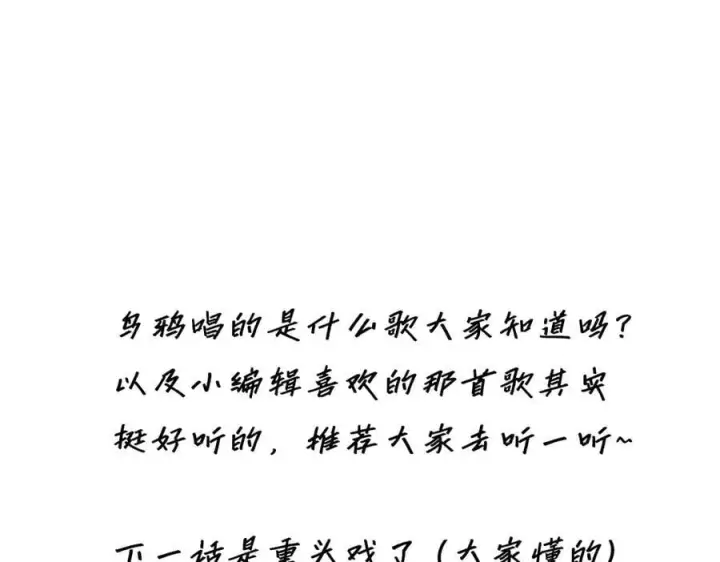 乌鸦唱的是什么歌大家知道吗?
以及小编辑喜欢的那首歌其实
挺好听的，推荐大家去听一听~
下一话是重头戏了(大家懂的)